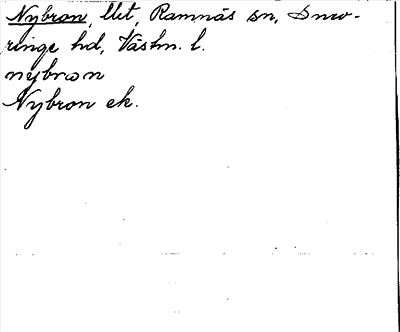 Nybron, llt, Ramnäs sn, Snev-
ringe hd, Västm. l.
nybrωn
Nybron ek.